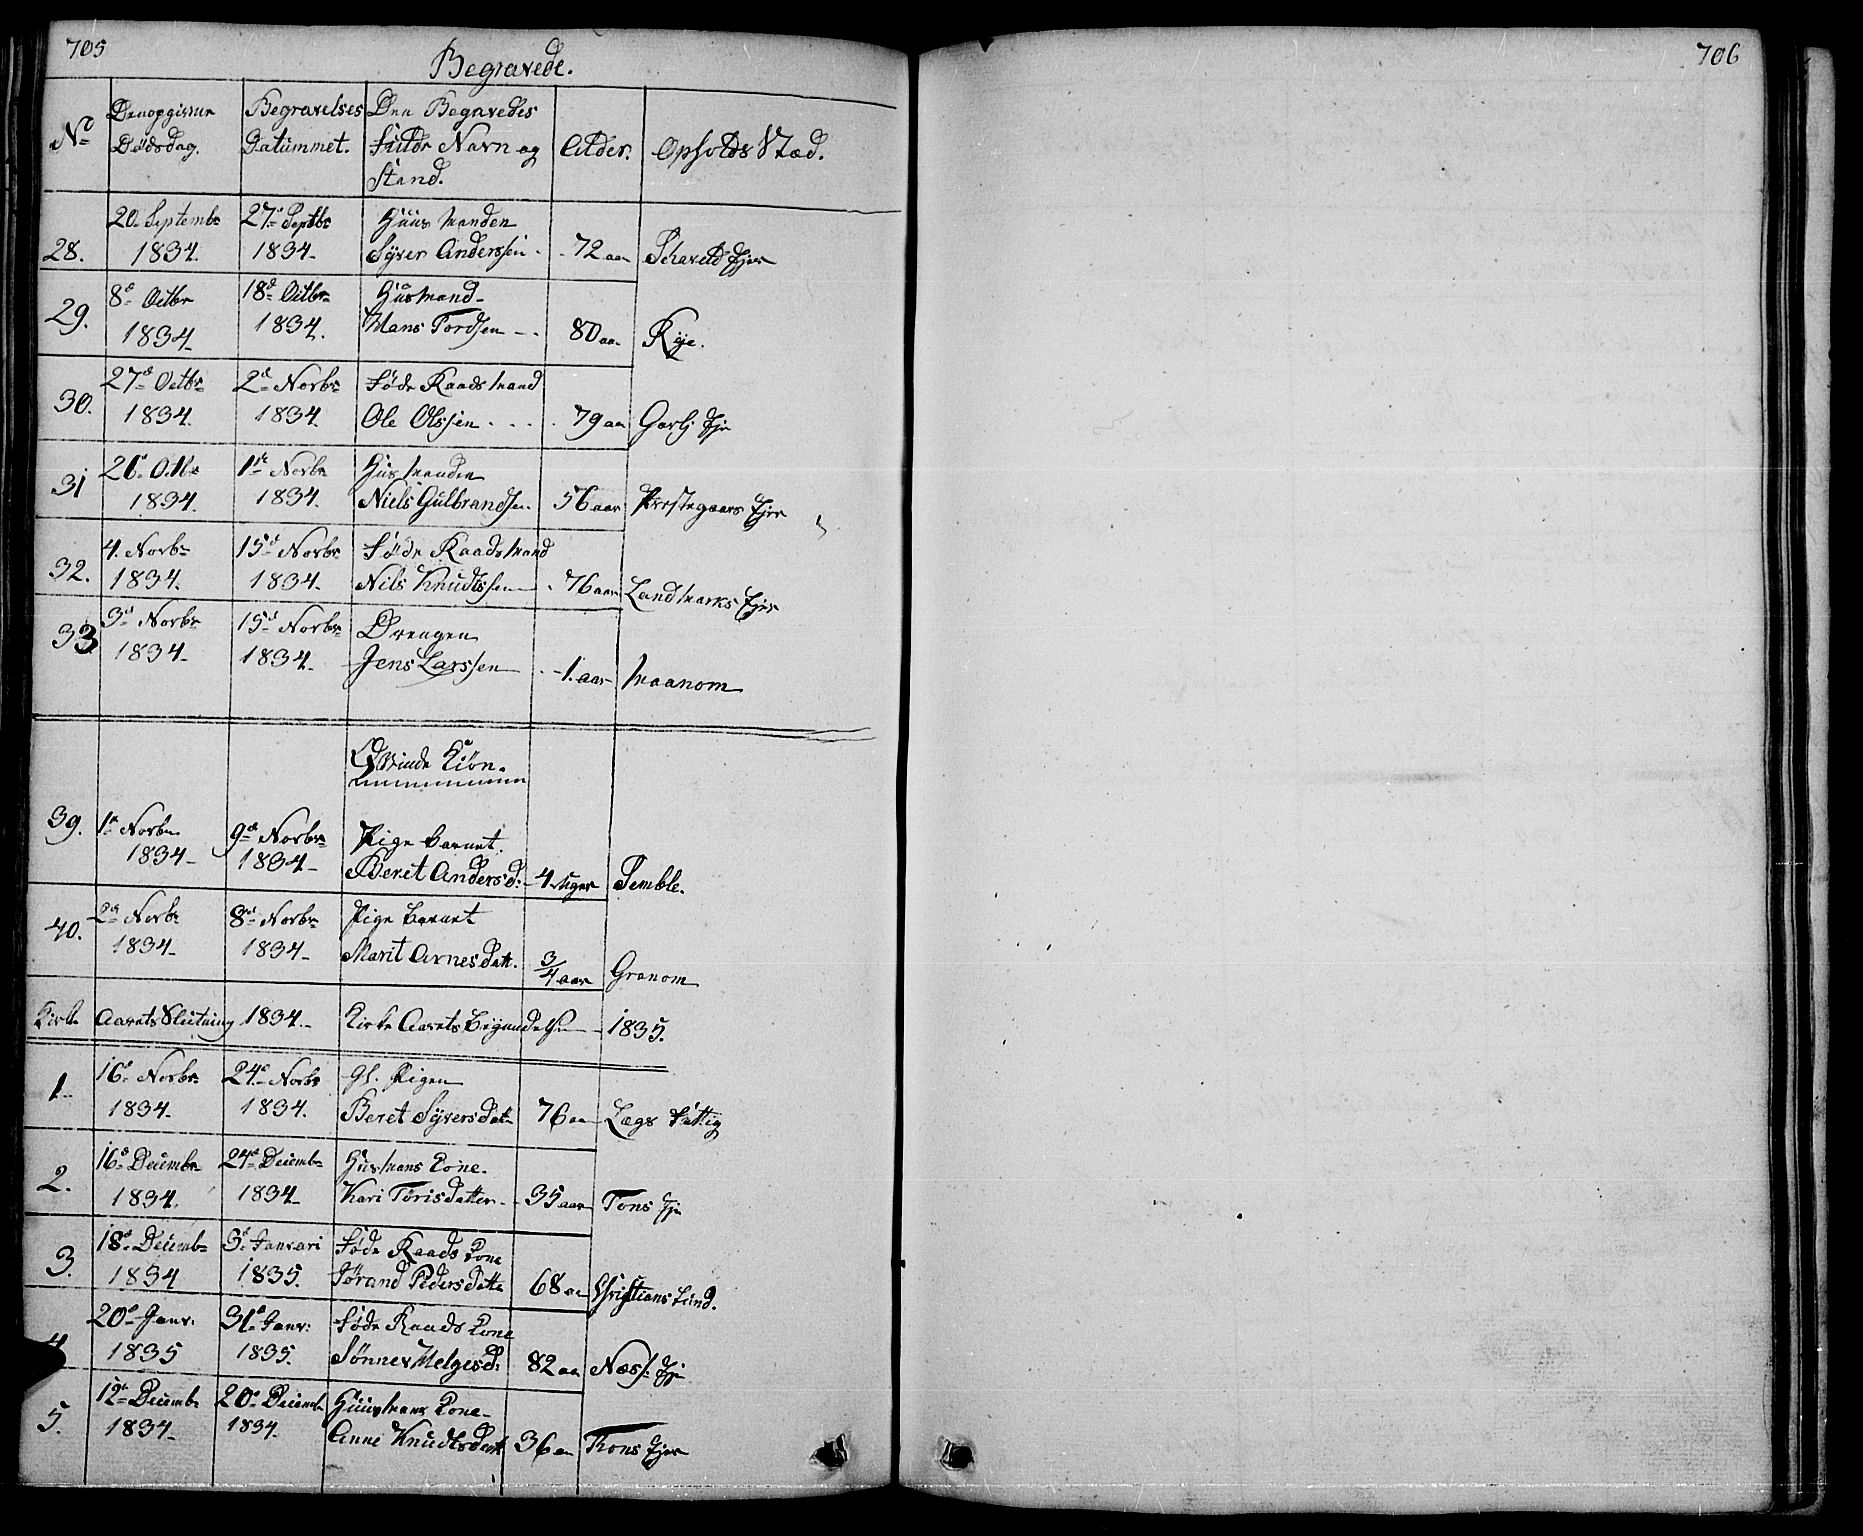 705
706
Begravede.
No
Dødsdag.
Begravelses Datummet.
Den Begravedes fulde Navn og Stand.
Alder.
Opholds Stæd.
28. 20. Septembr 1834. 27. Septbr 1834. Huusmanden Syver Anderssen 72 aar
29. 8d Octbr 1834 18d Octbr 1834. Husmand Hans Tordsen 80 aar Rye.
30. 27d Octbr 1834. 2d Novbr 1834. Føderaadsmand Ole Olssen 79 aar
31 26d Octbr 1834. 1ste Novbr 1834. Husmanden Niels Gulbrandsen 56 aar Præstegaards Ejer
32. 4. Novbr 1834. 15d Novbr 1834. Føderaadsmand Nils Knudtssen 76 aar Landmarks Ejer
33 3d Novbr 1834. 15d Novbr 1834. Drengen Jens Larssen 1. aar Maanom
Qvinde Kiøn.
39. 1ste Novbr 1834 9d Novbr 1834 Pige Barnet Beret Andersd: 4 Uger Semble.
40. 2d Novbr 1834 8de Novbr 1834 Pige Barnet Marit Arnesdatt. 3/4 aar Granom
Kirke Aarets Slutning 1834. Kirke Aarets Begyndelse 1835.
1. 16d Novbr 1834. 24d Novbr 1834. Gl. Pigen Beret Syversdatr 76 aar Lægs Fattig
2. 16d Decembr 1834. 24d Decembr 1834. Husmans Kone. Kari Torisdatter 35 aar Tons Eje
3. 18d Decembr 1834 3d Januari 1835. Føde Raads Kone Jørand Pedersdatter 68 aar Christians Lund.
4 20d Janr: 1835 31d Janr: 1835. Føde Raads Kone Sønnev Helgesd: 82 aar Næss: Eje
5. 12d Decembr 1834. 20d Decembr 1834. Huusmans Kone Anne Knudtsdatt 36 aar Thons Ejer